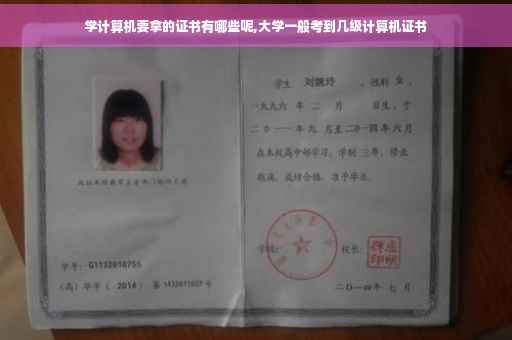 学计算机要拿的证书有哪些呢,大学一般考到几级计算机证书
学生 刘婉玲 ，性别 女 ，
一九九六 年 二 月 日生，于
二〇一一年九 月至二〇一四年六月
在本校高中部学习，学制 三年，修业
期满，成绩合格，准予毕业。
学校： 校长：
学号：G1132010755
(高) 毕字 ( 2014 ) 第 1432011027 号
二〇一四年 七 月